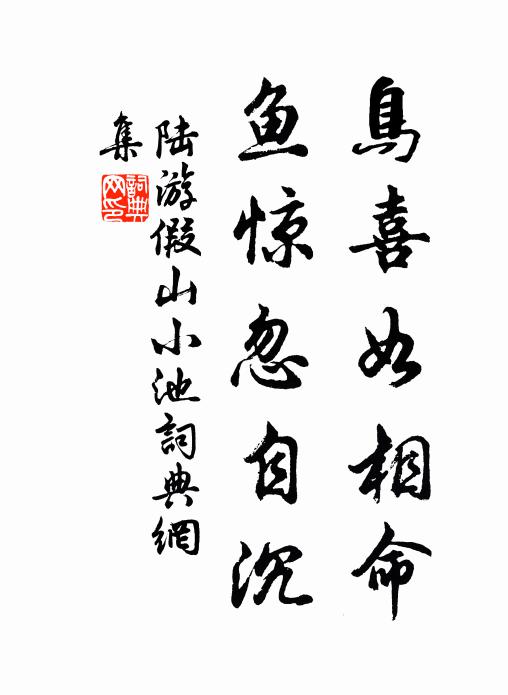 鳥喜如相命
鱼惊忽自沉
陆游假山小池詞典網
集
詞典
网印